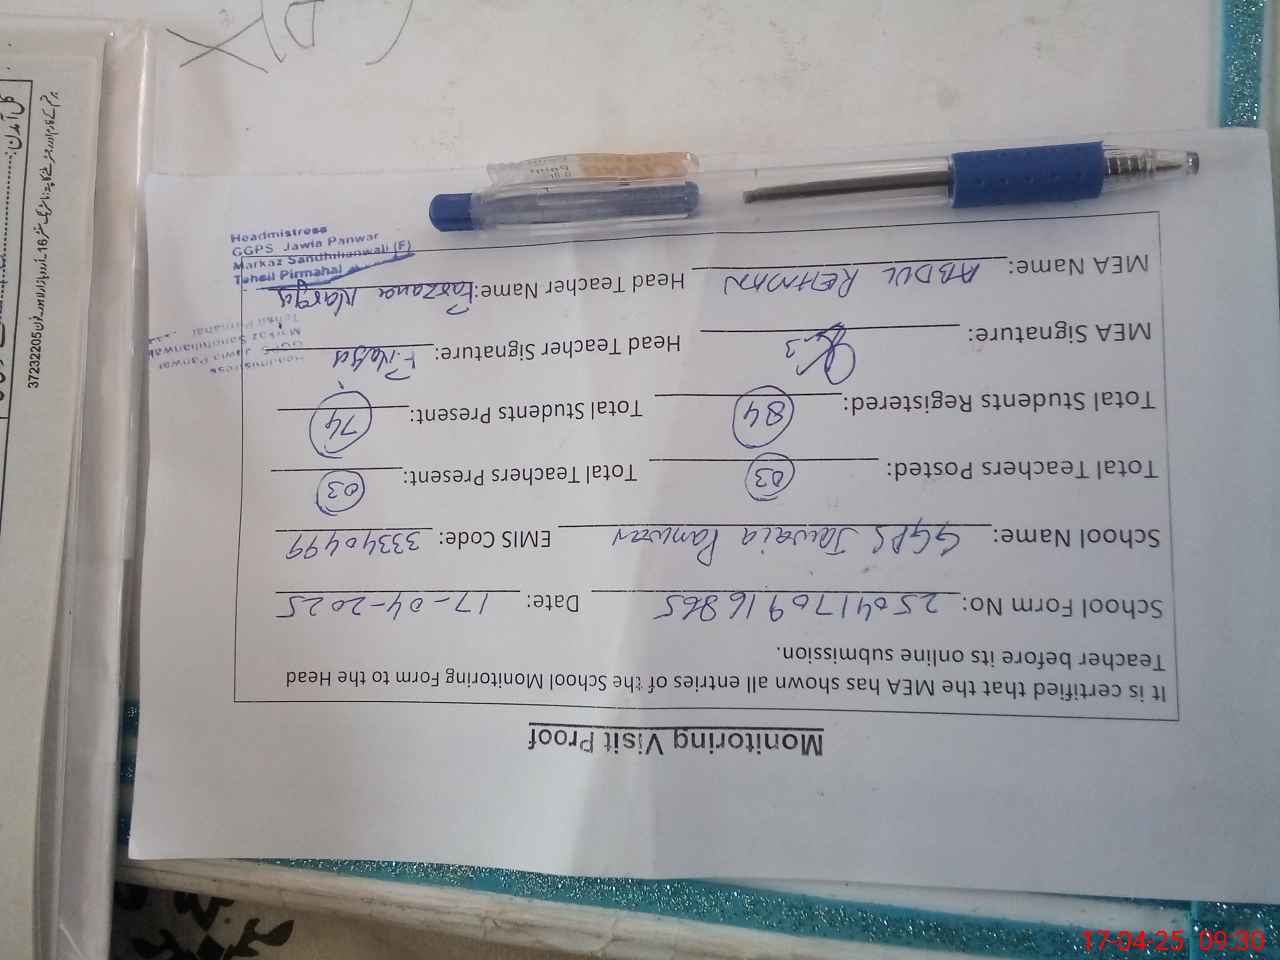 Monitoring Visit Proof
It is certified that the MEA has shown all entries of the School Monitoring Form to the Head
Teacher before its online submission.
School Form No: 250417091 6865 Date: 17-04-2025
School Name: GGPS Jawaia Panwar EMIS Code: 33340499
Total Teachers Posted: 03 Total Teachers Present: 03
Total Students Registered: 84 Total Students Present: 74
MEA Signature: Head Teacher Signature: F.Nargis
MEA Name: ABDUL REHMAN Head Teacher Name: Farzana Nargis
Headmistress
GGPS Jawia Panwar
Markaz Sandhilianwali (F)
Tehsil Pirmahal
Headmistress
GGPS Jawia Panwar
Markaz Sandhilianwali
Tehsil Pirmahal
37232205
17-04-25 09:30